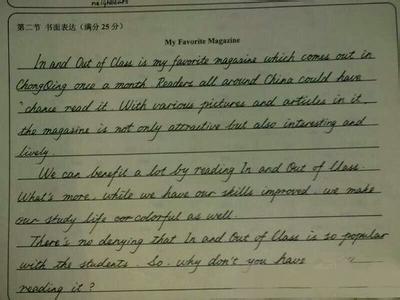 neighbours
第二节 书面表达（满分25分）
My Favorite Magazine
In and Out of Class is my favorite magazine which comes out in
ChongQing once a month. Readers all around China could have
chance read it. With various pictures and articles in it,
the magazine is not only attractive but also interesting and
lively.
We can benefit a lot by reading In and Out of Class.
What's more, while we have our skills improved, we make
our study life colorful as well.
There's no denying that In and Out of Class is so popular
with the students. So, why don't you have
reading it?